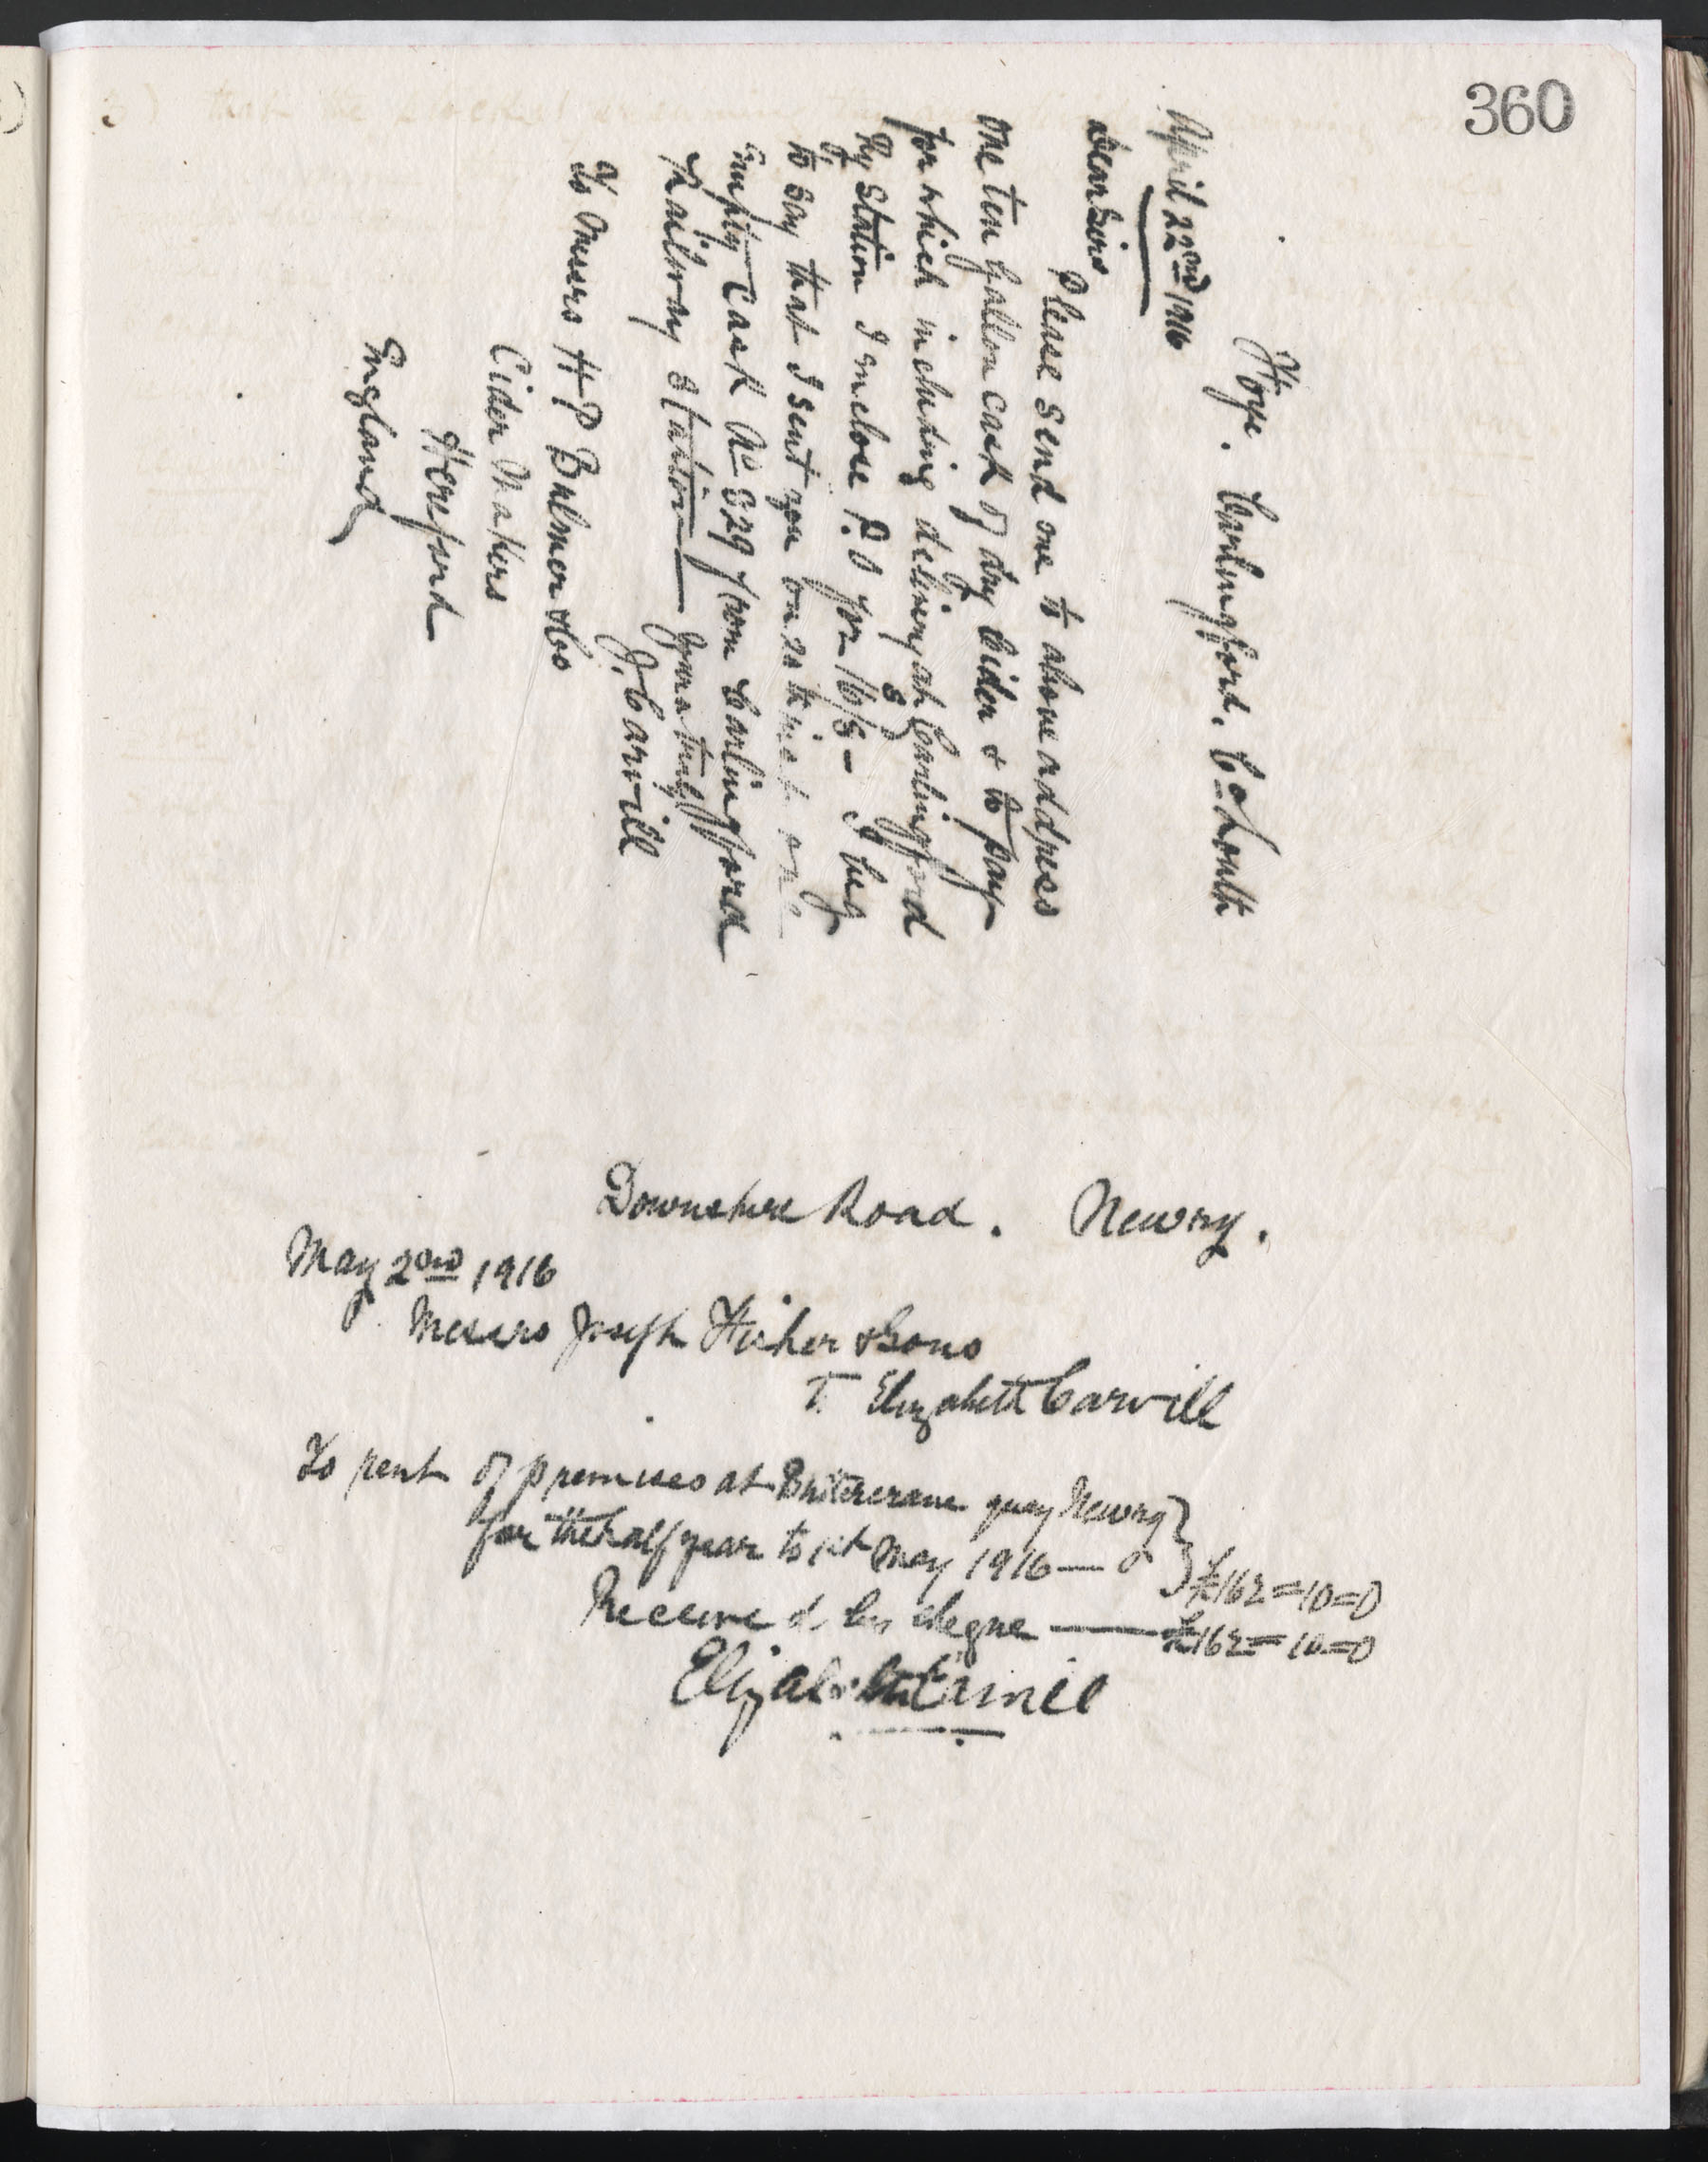 360
Foye. Carlingford. Co Louth
April 22nd 1916
Dear Sirs
Please send one to above address
one ten gallon cask of dry Cider & to pay
for which including delivery at Carlingford
Ry Station I enclose P.O for 16/8 – I beg
to say that I sent you on
Empty Cask No 829 from Carlingford
Railway Station Yours truly
J. Carvill
To Messrs H P Bulmer & Co
Cider Makers
Hereford
England
Downshire Road. Newry.
May 2nd 1916
Messrs Joseph Fisher & Sons
To Elizabeth Carvill
To rent of premises at Buttercrane quay Newry
for the half year to 1st May 1916 — £162=10=0
Received by cheque — £162=10=0
Elizabeth Carvill